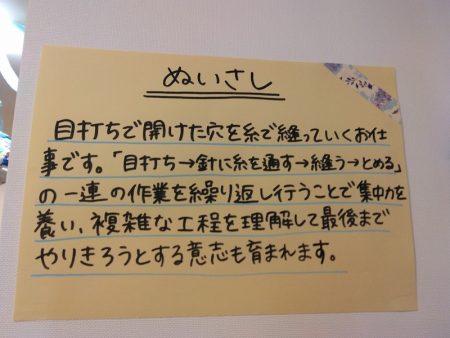 ぬいさし
目打ちで開けた穴を糸で縫っていくお仕
事です。「目打ち→針に糸を通す→縫う→とめる」
の一連の作業を繰り返し行うことで集中力を
養い、複雑な工程を理解して最後まで
やりきろうとする意志も育まれます。